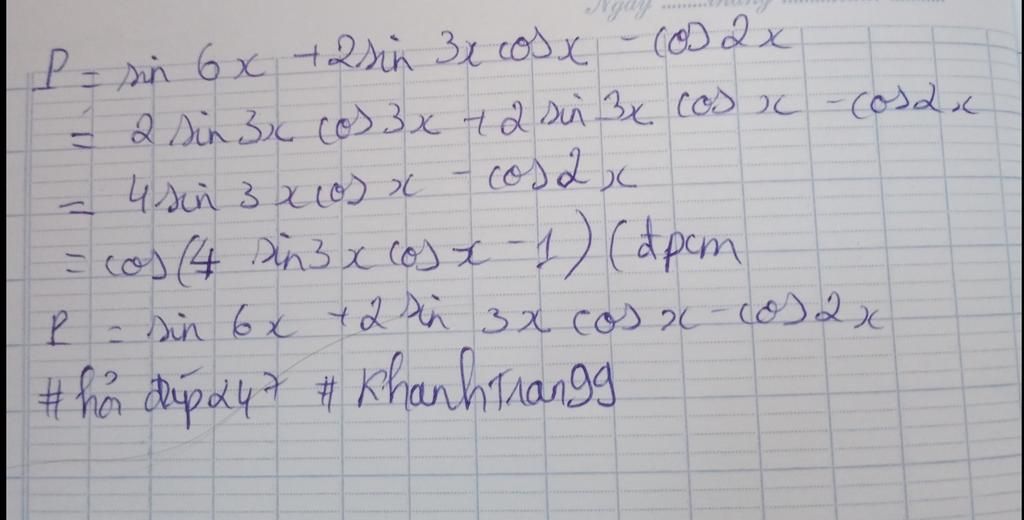 Ngày ........tháng ....................
P = sin 6x + 2 sin 3x cos x - cos 2x
= 2 sin 3x cos 3x + 2 sin 3x cos x - cos 2x
= 4 sin 3x cos x - cos 2x
= cos (4 sin 3x cos x - 1) (đpcm
P = sin 6x + 2 sin 3x cos x - cos 2x
# hỏi đáp 247 # KhanhTran99